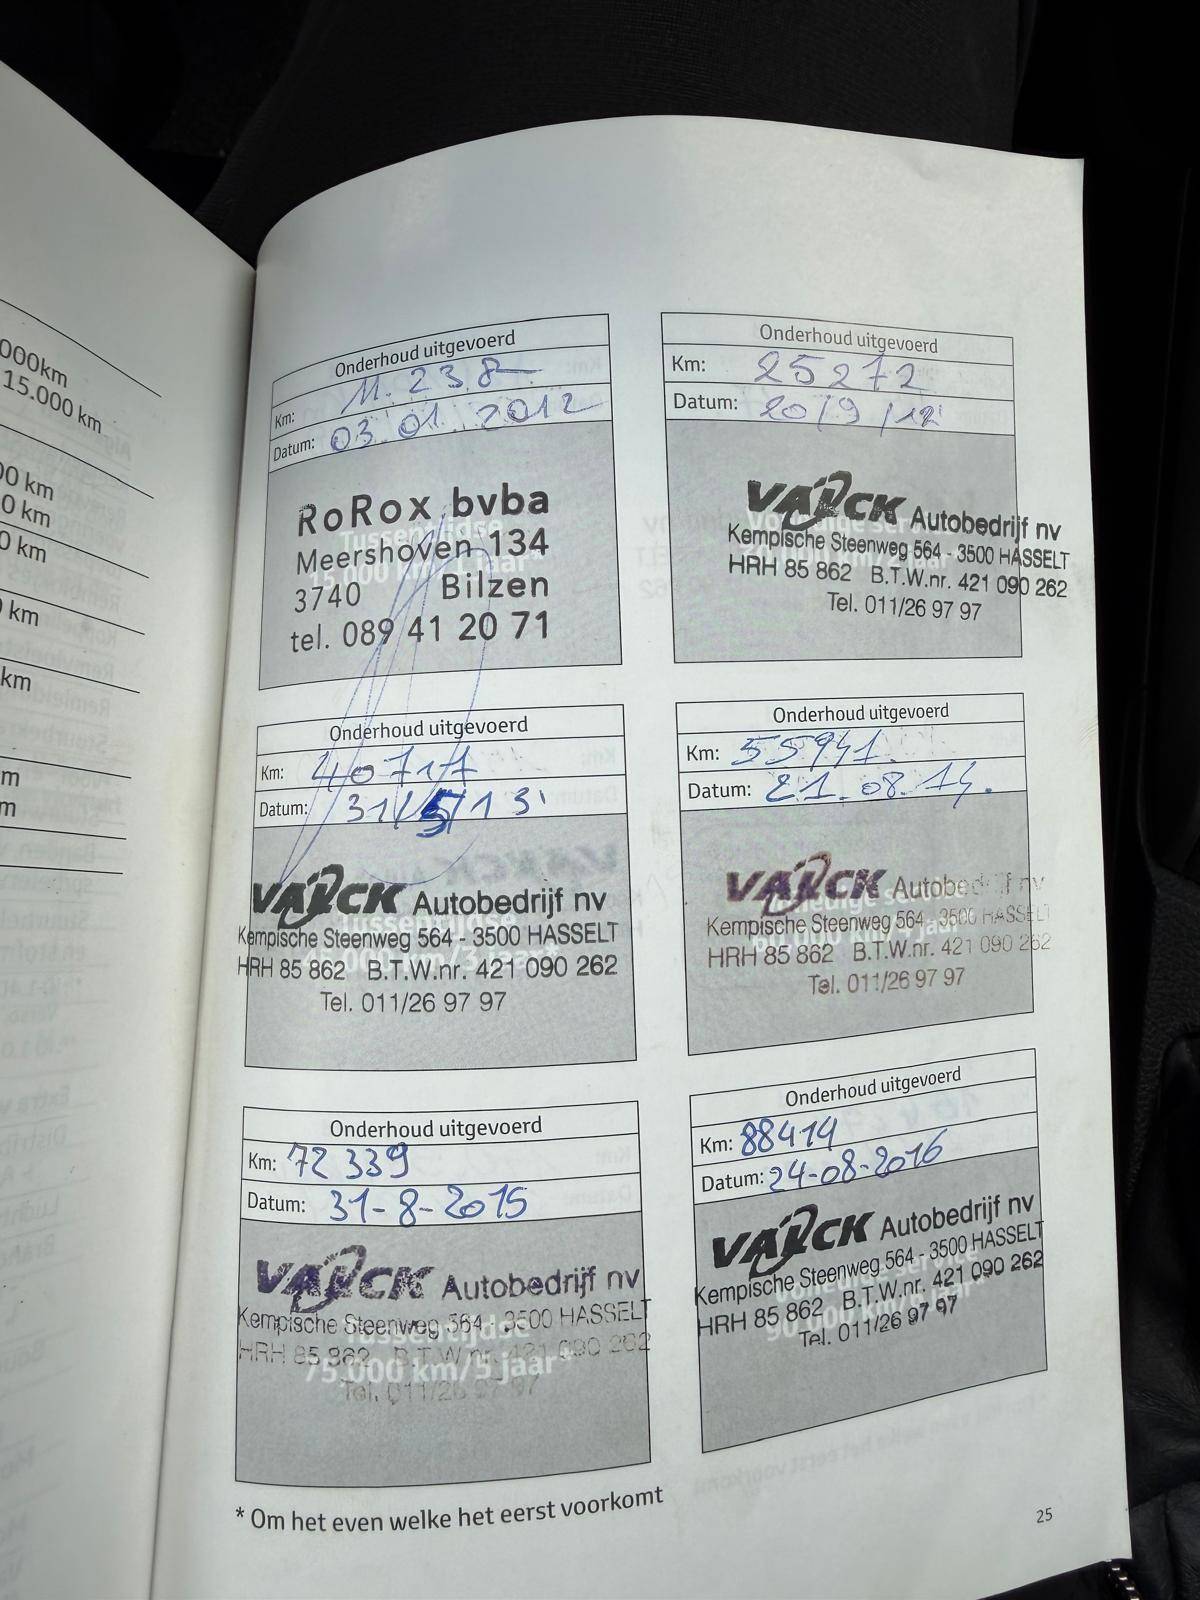 000km
15.000 km
00 km
0 km
0 km
km
km
m
m
Onderhoud uitgevoerd
Km: 11.238
Datum: 03.01.2012
RoRox bvba
Tussentijdse
Meershoven 134
15.000 km/1 jaar*
3740 Bilzen
tel. 089 41 20 71
Onderhoud uitgevoerd
Km: 25272
Datum: 20/9/12
VALCK Autobedrijf nv
Kempische Steenweg 564 - 3500 HASSELT
HRH 85 862 B.T.W.nr. 421 090 262
Tel. 011/26 97 97
Onderhoud uitgevoerd
Km:
Datum: 31/5/13
VALCK Autobedrijf nv
Tussentijdse
Kempische Steenweg 564 - 3500 HASSELT
km/3 jaar*
HRH 85 862 B.T.W.nr. 421 090 262
Tel. 011/26 97 97
Onderhoud uitgevoerd
Km: 55941
Datum: 21.08.14.
VALCK Autobedrijf nv
Volledige service
Kempische Steenweg 564 - 3500 HASSELT
HRH 85 862 B.T.W.nr. 421 090 262
Tel. 011/26 97 97
Onderhoud uitgevoerd
Km: 72 339
Datum: 31-8-2015
VALCK Autobedrijf nv
Kempische Steenweg 564 - 3500 HASSELT
Tussentijdse
HRH 85 862 B.T.W.nr. 421 090 262
75.000 km/5 jaar*
Tel. 011/26 97 97
Onderhoud uitgevoerd
Km: 88414
Datum: 24-08-2016
VALCK Autobedrijf nv
Kempische Steenweg 564 - 3500 HASSELT
Volledige service
HRH 85 862 B.T.W.nr. 421 090 262
90.000 km/6 jaar*
Tel. 011/26 97 97
* Om het even welke het eerst voorkomt
25